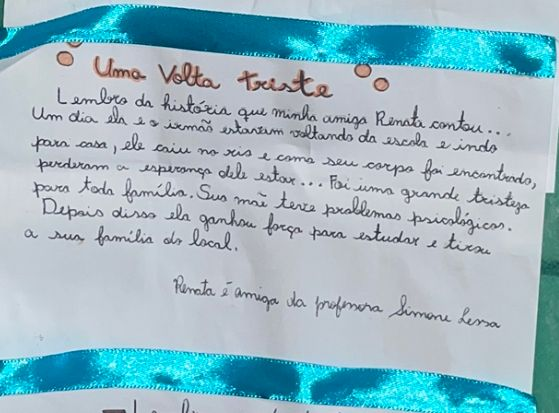 Uma Volta triste
Lembro da história que minha amiga Renata contou...
Um dia ela e o irmão estavam voltando da escola e indo
para casa, ele caiu no rio e como seu corpo foi encontrado,
perderam a esperança dele estar... Foi uma grande tristeza
para toda família. Sua mãe teve problemas psicológicos.
Depois disso ela ganhou força para estudar e tirou
a sua família do local.
Renata é amiga da professora Simone Lessa